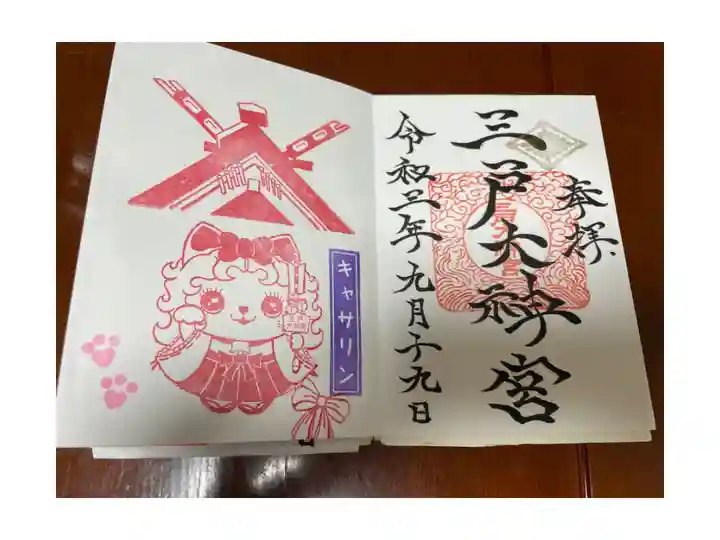 奉拝
三戸大神宮
令和三年九月十九日
キャサリン